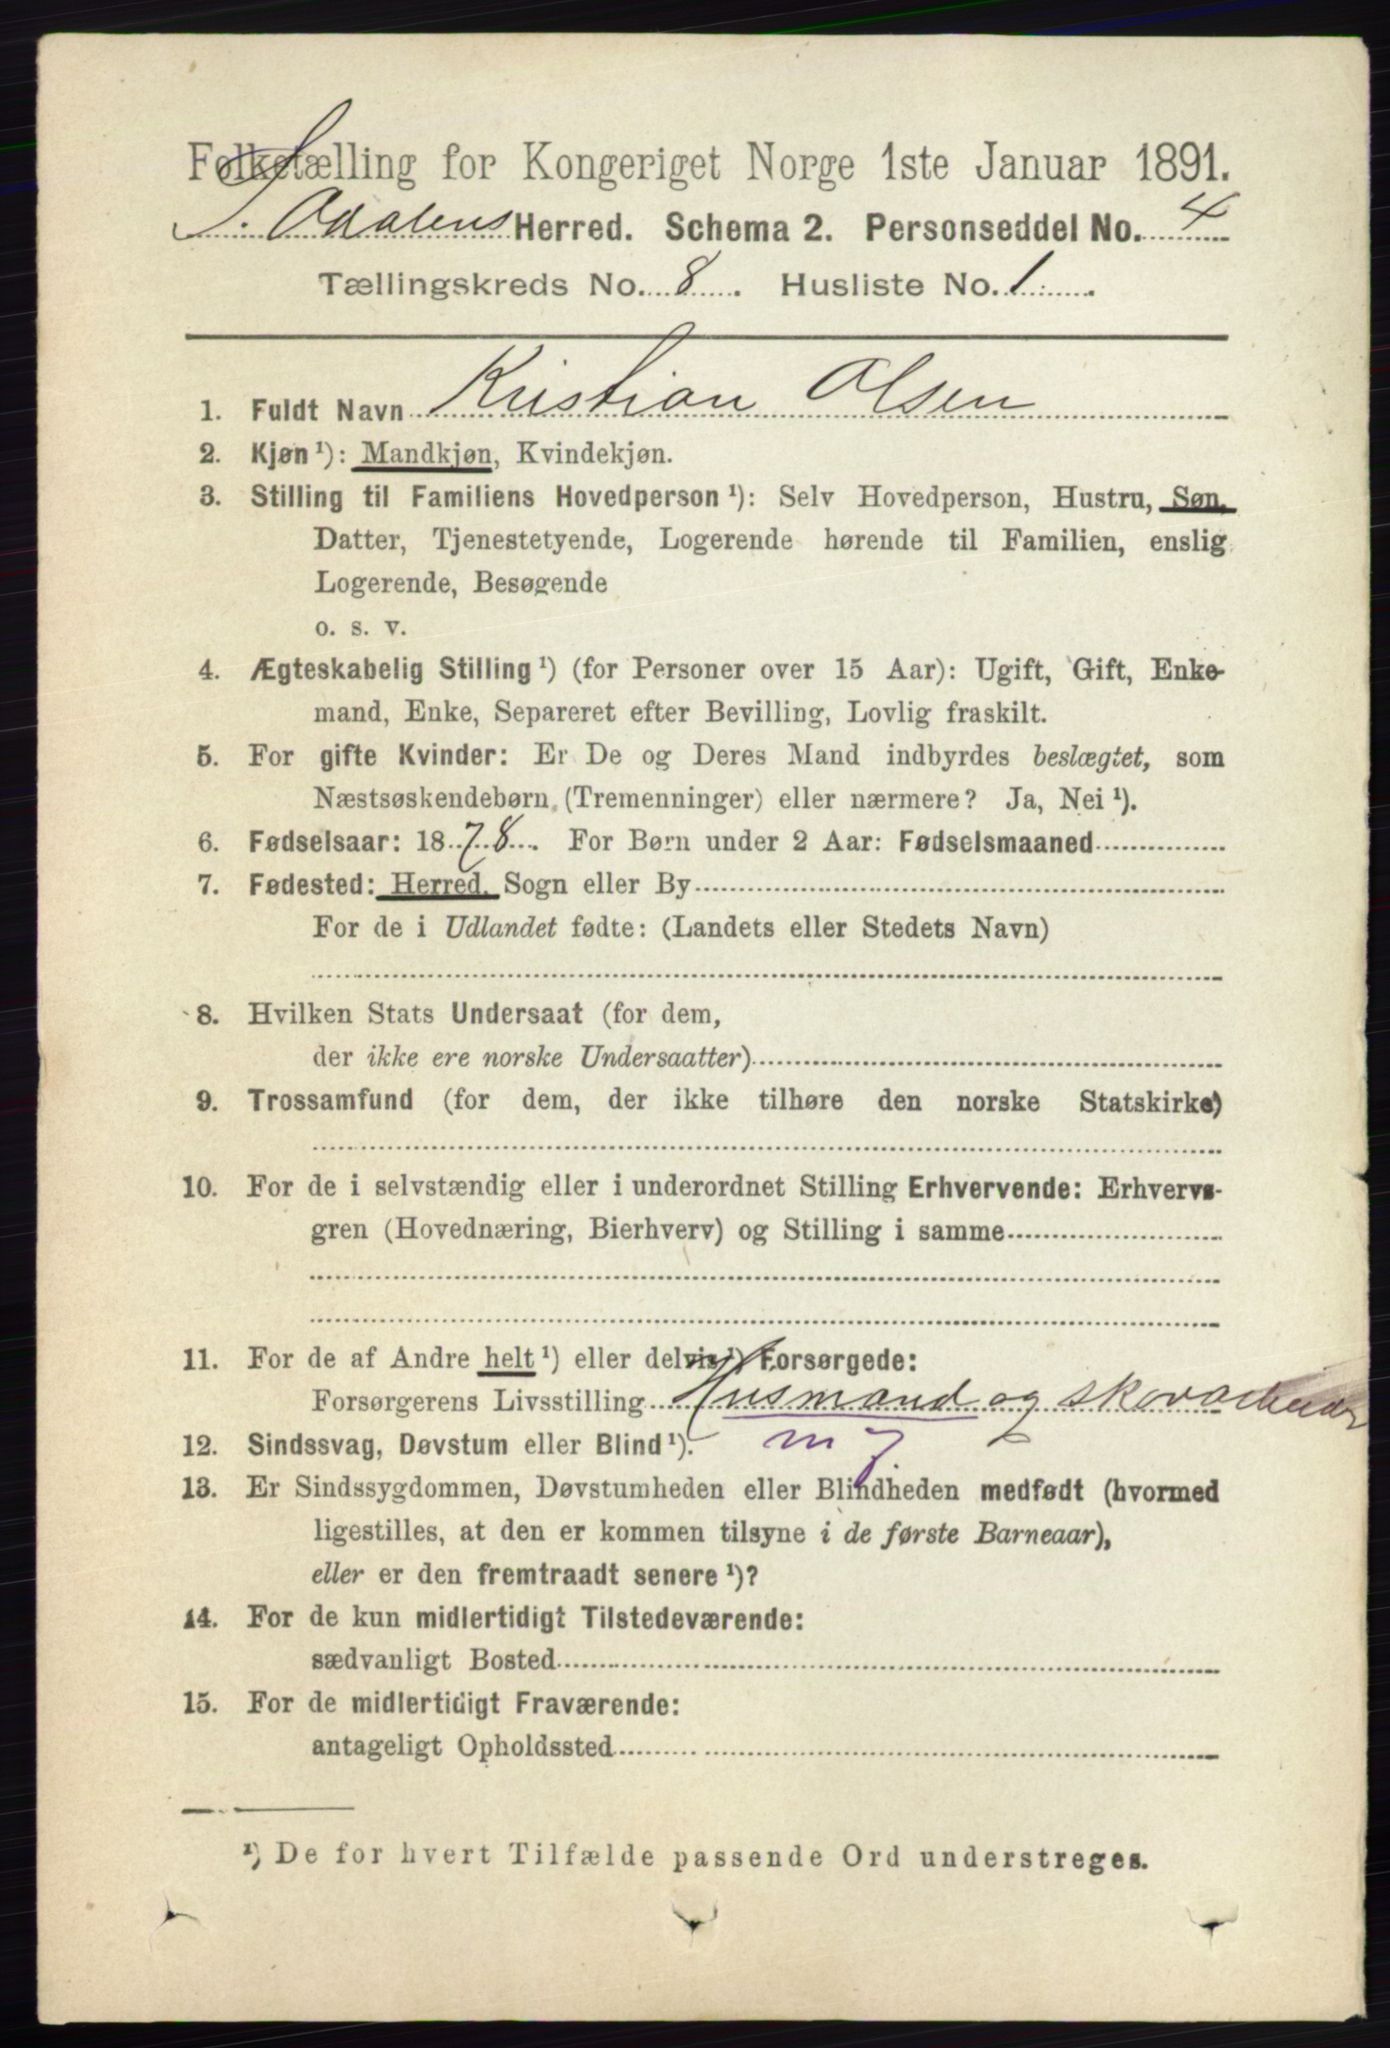 Folketælling for Kongeriget Norge 1ste Januar 1891.
S. Odalens Herred. Schema 2. Personseddel No. 4
Tællingskreds No. 8. Husliste No. 1.
1. Fuldt Navn Kristian Olsen
2. Kjøn ¹): Mandkjøn, Kvindekjøn.
3. Stilling til Familiens Hovedperson ¹): Selv Hovedperson, Hustru, Søn,
Datter, Tjenestetyende, Logerende hørende til Familien, enslig
Logerende, Besøgende
o. s. v.
4. Ægteskabelig Stilling ¹) (for Personer over 15 Aar): Ugift, Gift, Enke-
mand, Enke, Separeret efter Bevilling, Lovlig fraskilt.
5. For gifte Kvinder: Er De og Deres Mand indbyrdes beslægtet, som
Næstsøskendebørn (Tremenninger) eller nærmere? Ja, Nei ¹).
6. Fødselsaar: 1878. For Børn under 2 Aar: Fødselsmaaned
7. Fødested: Herred, Sogn eller By
For de i Udlandet fødte: (Landets eller Stedets Navn)
8. Hvilken Stats Undersaat (for dem,
der ikke ere norske Undersaatter)
9. Trossamfund (for dem, der ikke tilhøre den norske Statskirke)
10. For de i selvstændig eller i underordnet Stilling Erhvervende: Erhvervs-
gren (Hovednæring, Bierhverv) og Stilling i samme
11. For de af Andre helt ¹) eller delvis ¹) Forsørgede:
Forsørgerens Livsstilling Husmand og skovarbeider
12. Sindssvag, Døvstum eller Blind ¹). m j
13. Er Sindssygdommen, Døvstumheden eller Blindheden medfødt (hvormed
ligestilles, at den er kommen tilsyne i de første Barneaar),
eller er den fremtraadt senere ¹)?
14. For de kun midlertidigt Tilstedeværende:
sædvanligt Bosted
15. For de midlertidigt Fraværende:
antageligt Opholdssted
¹) De for hvert Tilfælde passende Ord understreges.